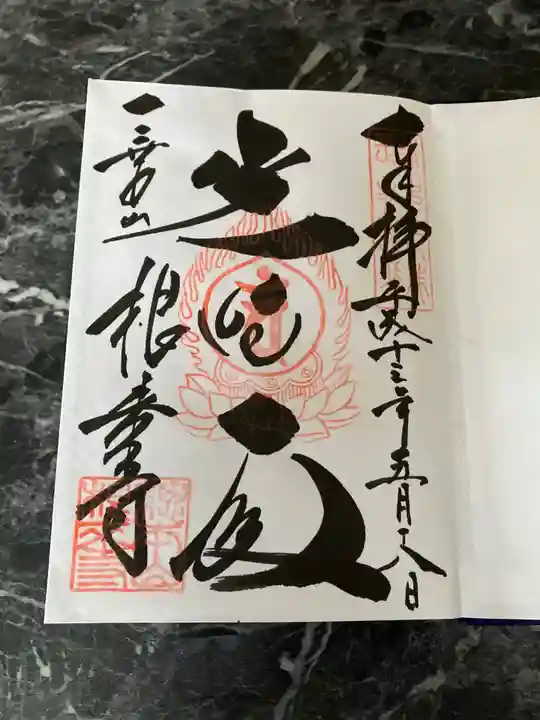 奉拝 平成十三年五月十八日
光明殿
一乗山 根来寺